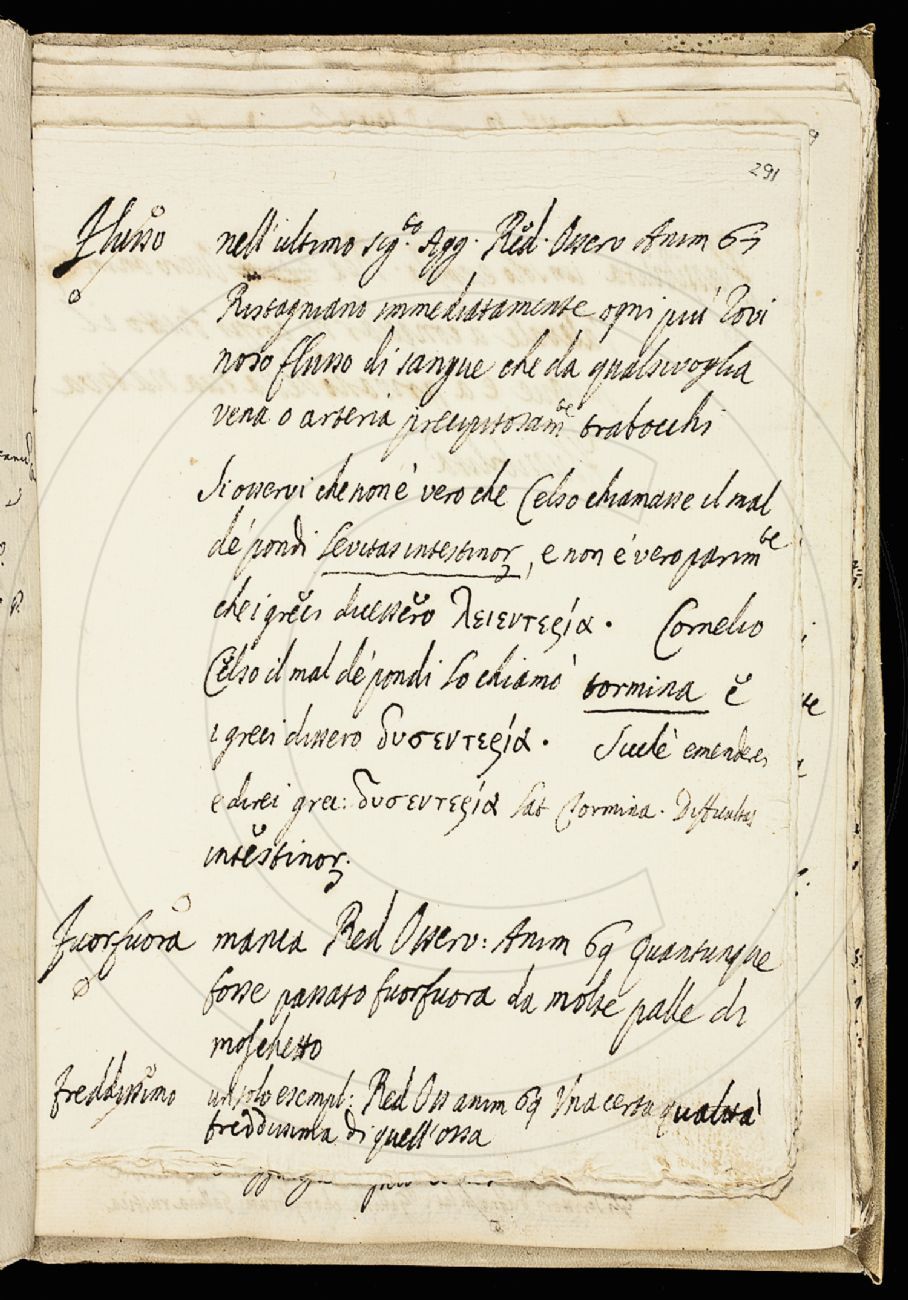 291
Flusso nell'ultimo sig.to Agg. Red. Osserv Anim 67
Ristagnano immediatamente ogni più rovi
noso flusso di sangue che da qualsivoglia
vena o arteria precipitosam.te trabocchi
Si osservi che non è vero che Celso chiamasse il mal
de' pondi Levitas intestinor, e non è vero parim.te
che i greci dicessero λειεντερία. Cornelio
Celso il mal de' pondi lo chiamò tormina e
i greci dissero δυσεντερία. Sicché emenderei
e direi grec: δυσεντερία lat Tormina. Difficultas
intestinor.
Fuorfuora manca Red Osserv: Anim 69 Quantunque
fosse passato fuorfuora da molte palle di
moschetto
freddissimo un solo esempl: Red Oss anim 69 Una certa qualità
freddissima di quell'ossa